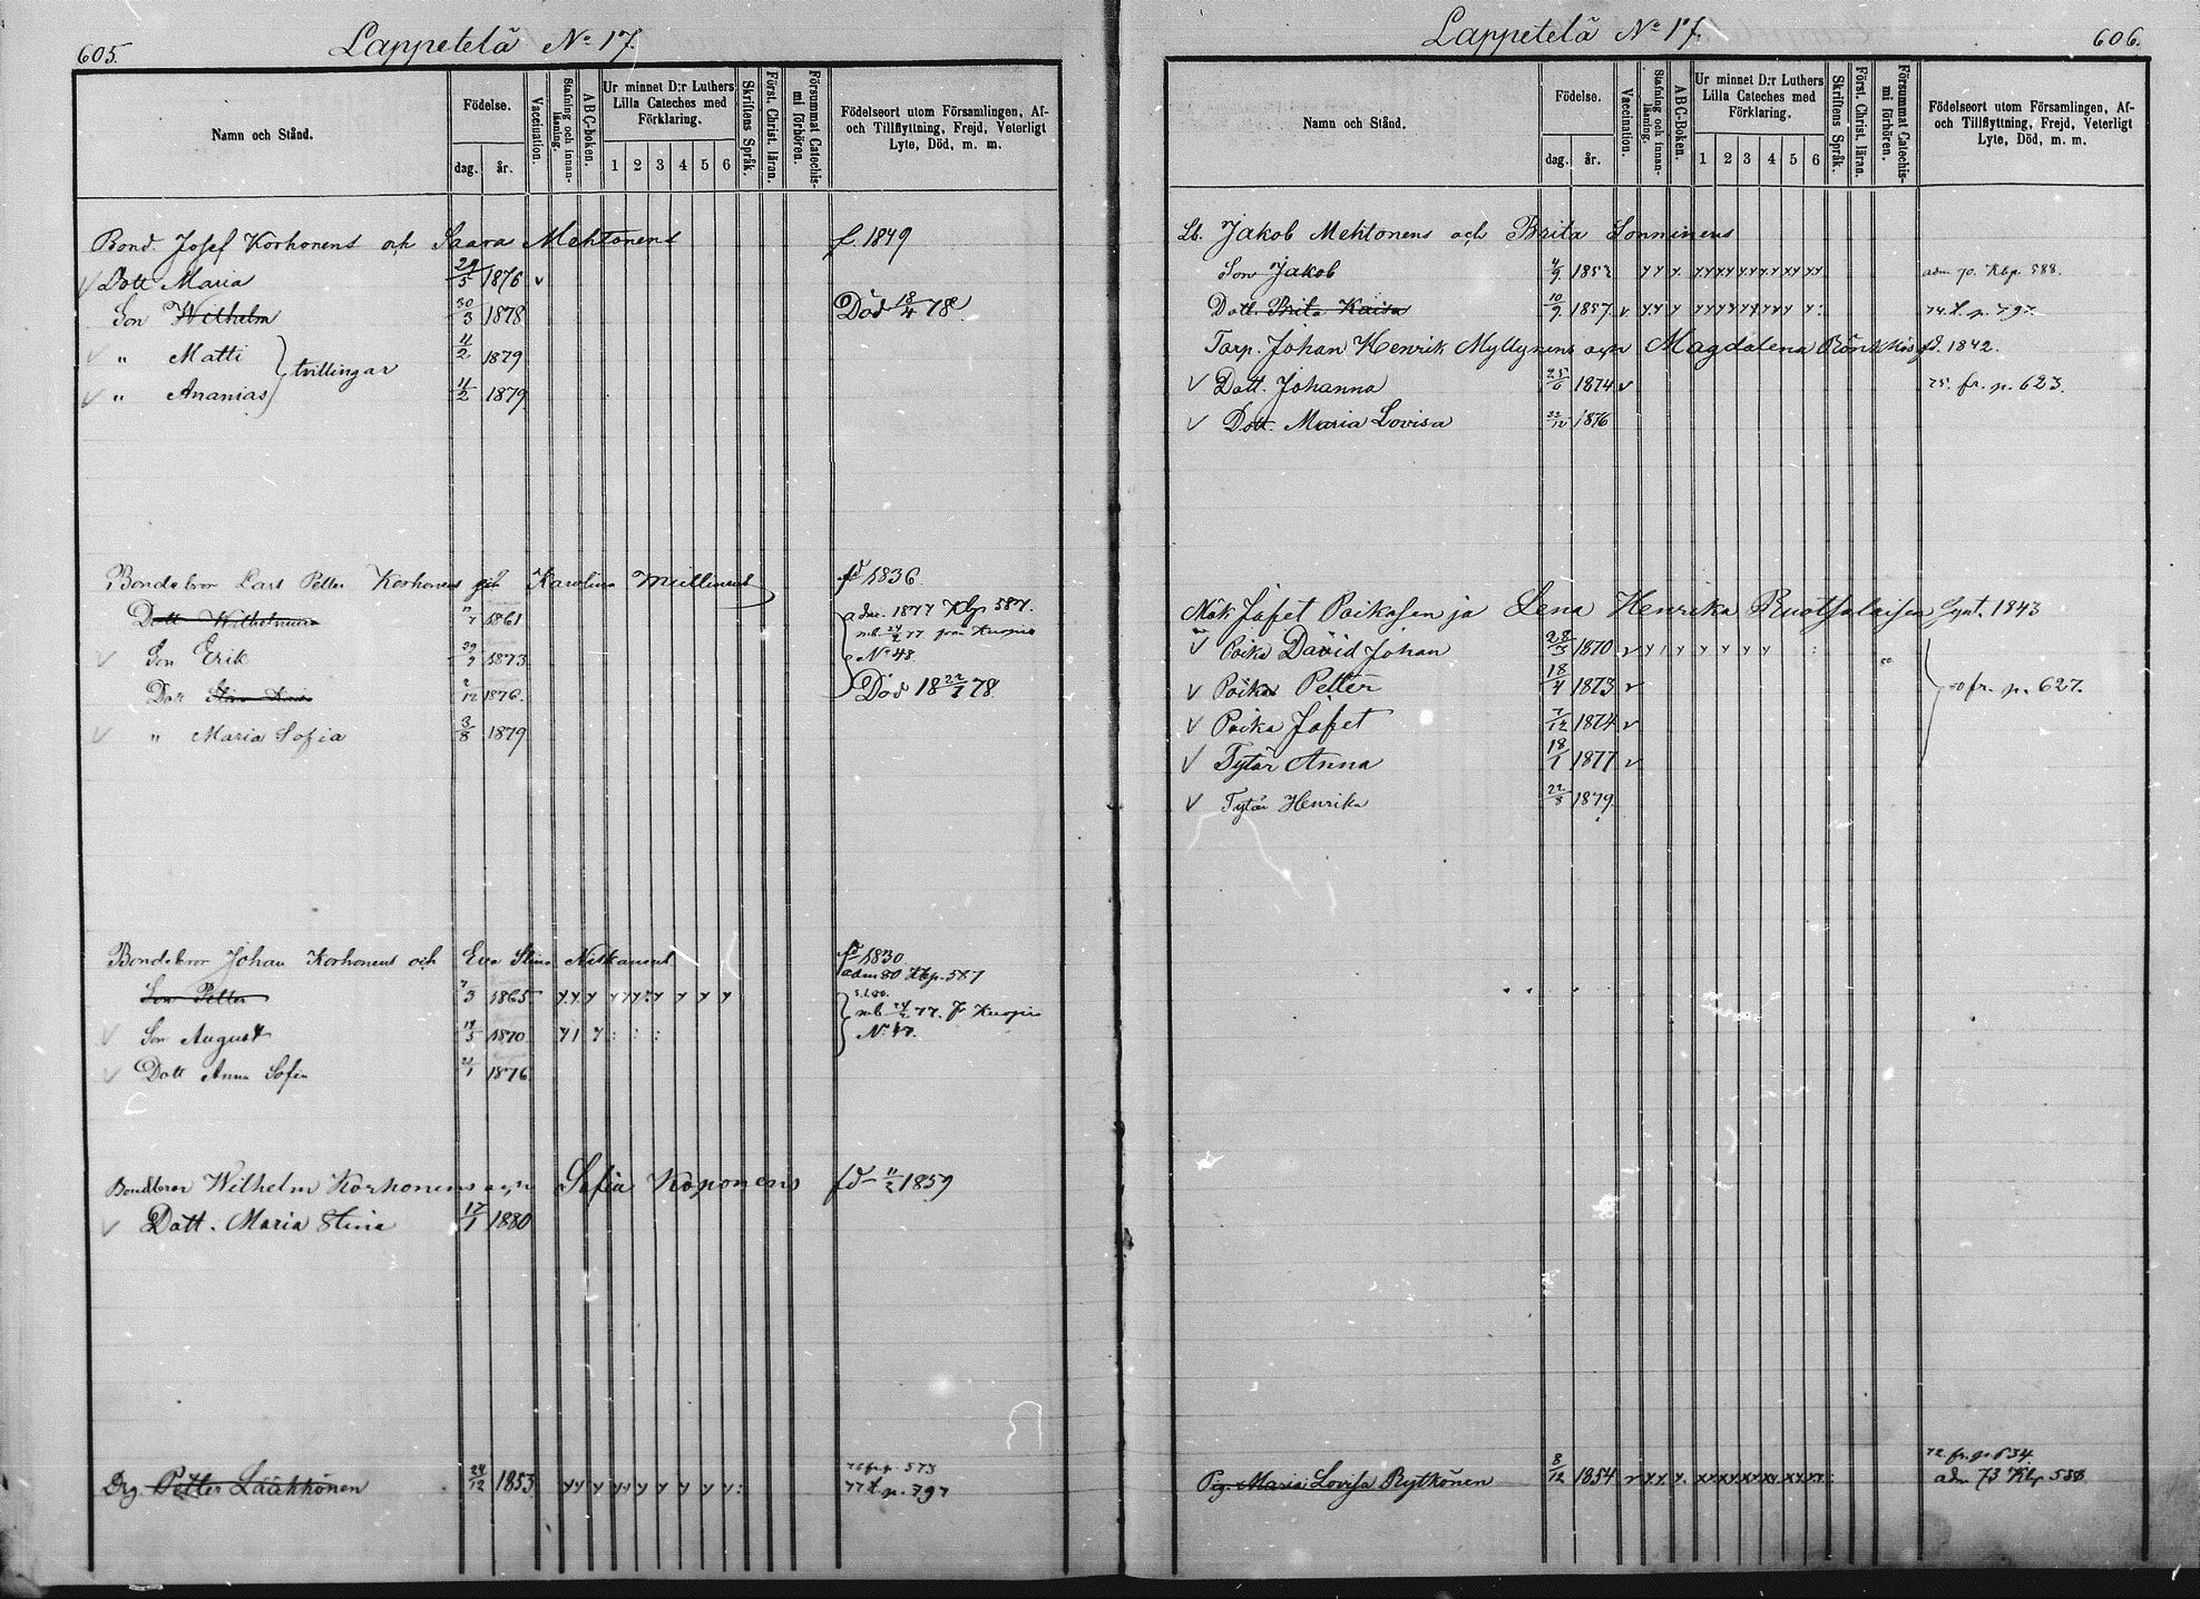 605.
Lappetelä No 17.
Namn och Stånd.
Födelse.
dag.
år.
Vaccination.
Stafning och innanläsning.
ABC-boken.
Ur minnet D:r Luthers
Lilla Cateches med
Förklaring.
1 2 3 4 5 6
Skriftens Språk.
Först. Christ. läran.
Försummat Catechismi förhören.
Födelseort utom Församlingen, Af-
och Tillflyttning, Frejd, Veterligt
Lyte, Död, m. m.
Bond. Josef Korhonens och Saara Mehtonens f. 1849
v Dott Maria 29/5 1876 v
Son Wilhelm 30/3 1878 Död 18/4 78
v " Matti 11/2 1879
tvillingar
v " Ananias 11/2 1879
Bondebror Lars Petter Korhonens och Karolina fd 1836
Dott Wilhelmina 1861 adm. 1877 Kbp 587.
v Son Erik 29/9 1873 No 48
Dott 1876. Död 18 22/1 78
v " Maria Sofia 3/8 1879
Bondebror Johan Korhonens och Eva Stina fd 1830
adm 80 Kbp. 587
Son Petter 1865 y y y
v Son August 19/5 1870 No 47.
v Dott Anna Sofia 1876
Bondebror Wilhelm Korhonens och Sofia Koponens fd 11/2 1859
v Dott. Maria Stina 17/1 1880
Drg Petter Laukkonen 24/12 1853 77 t p. 797
606.
Lappetelä No 17.
Namn och Stånd.
Födelse.
dag.
år.
Vaccination.
Stafning och innanläsning.
ABC-Boken.
Ur minnet D:r Luthers
Lilla Cateches med
Förklaring.
1 2 3 4 5 6
Skriftens Språk.
Först. Christ. läran.
Försummat Catechismi förhören.
Födelseort utom Församlingen, Af-
och Tillflyttning, Frejd, Veterligt
Lyte, Död, m. m.
Lb. Jakob Mehtonens och Brita Sonninens
Son Jakob 4/9 1852 adm 70. Kbp. 588.
Dott. Brita Kaisa 10/9 1857 v 74 t. p. 797.
Torp. Johan Henrik Myllynens och Magdalena Rönkkös fd. 1842.
v Dott. Johanna 25/6 1874 v 75. fr. p. 623.
v Dott. Maria Lovisa 23/12 1876
Mök Jafet Poikosen ja Lena Henrika Ruotsalaisen Synt. 1843
v Poika David Johan 28/3 1870 v
v Poika Petter 18/4 1873 v 80 fr. p. 627.
v Poika Jafet 7/12 1874 v
v Tytär Anna 18/1 1877 v
v Tytär Henrika 22/8 1879
72. fr. p. 634.
Pig. Maria Lovisa Rytkönen 8/12 1854 v adm 73 Kbp 588